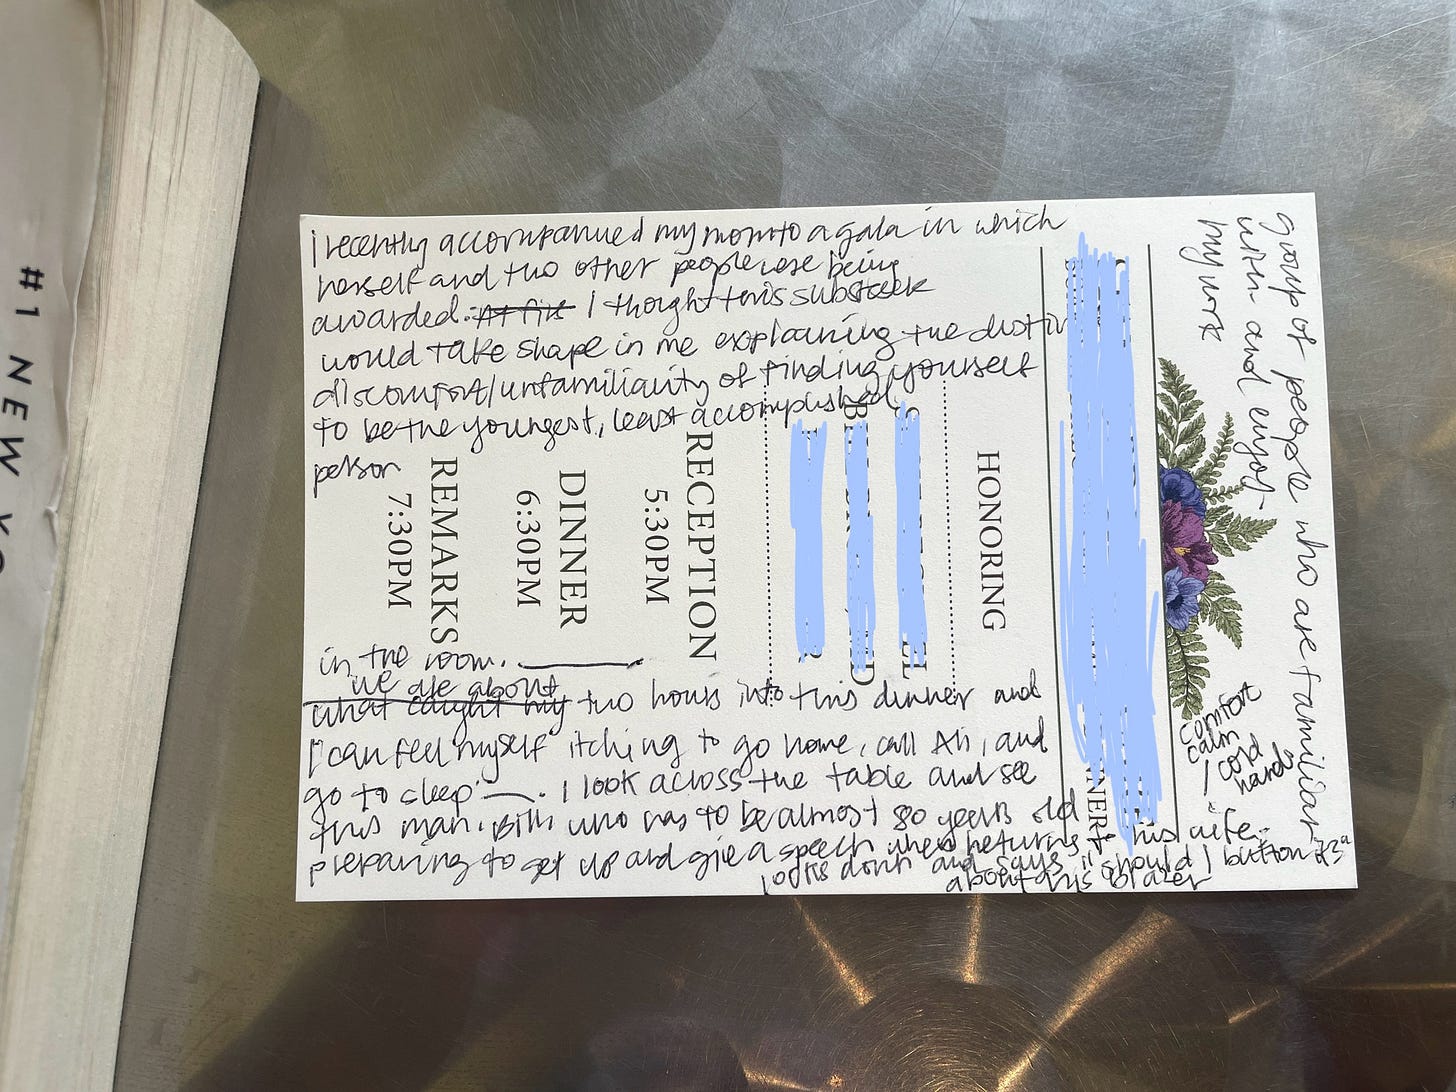 i recently accompanued my mom to a gala in which
herself and two other people were being
awarded. At firs I thought this substack
would take shape in me explaining the distin
discomfort/unfamiliarity of finding yourself
to be the youngest, least accomplished
person
in the room.
we are about
what caught my two hours into this dinner and
I can feel myself itching to go home, call Ali, and
go to sleep. I look across the table and see
this man, Bill, who has to be almost 80 years old
preparing to get up and give a speech when he turns to his wife
looks down and says "should I button it?"
about his blazer
group of people who are familiar
with and enjoy
my work
comfort
calm
/ cold
hard
HONORING
RECEPTION
5:30PM
DINNER
6:30PM
REMARKS
7:30PM
#1 NEW YO